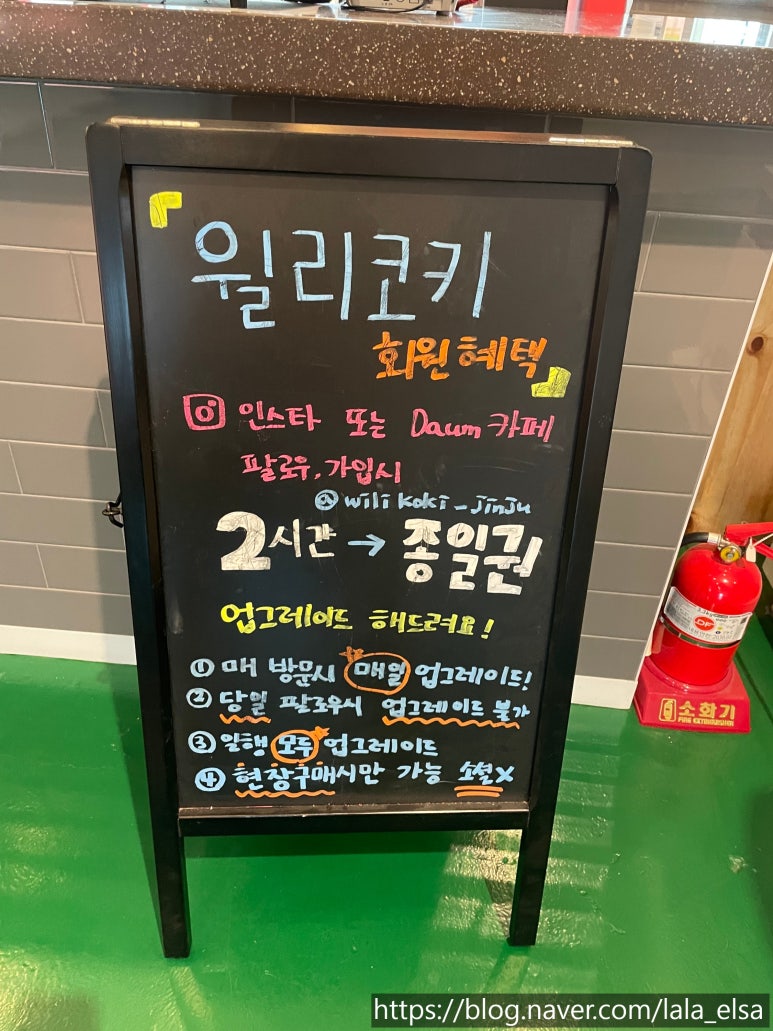 윌리코키
회원혜택
인스타 또는 Daum 카페
팔로우, 가입시
@wili koki_jinju
2시간 → 종일권
업그레이드 해드려요!
① 매 방문시 매일 업그레이드!
② 당일 팔로우시 업그레이드 불가
③ 일행 모두 업그레이드
④ 현장구매시만 가능 소셜X
소화기
FIRE EXTINGUISHER
https://blog.naver.com/lala_elsa